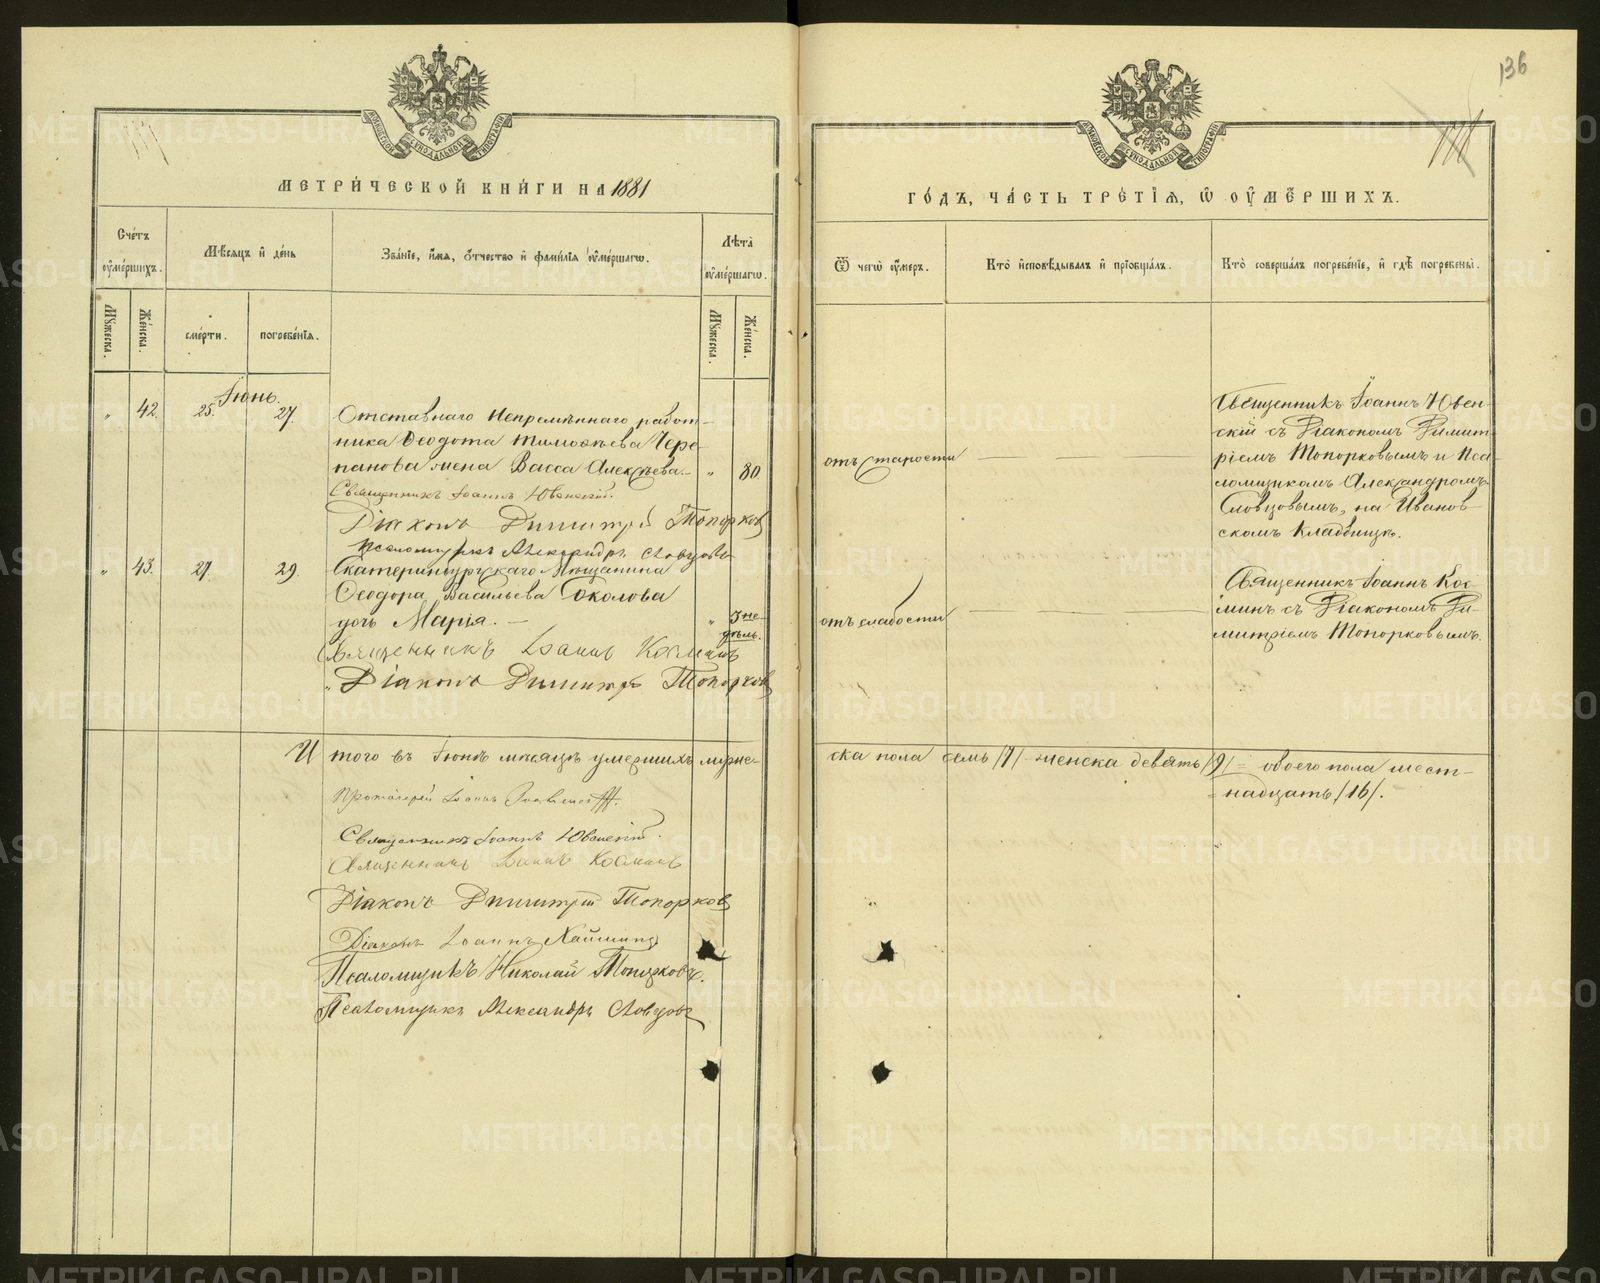 136
МЕТРИ́ЧЕСКОЙ КНИ́ГИ НА 1881
ГО́ДЪ, ЧА́СТЬ ТРЕ́ТІѦ, Ѡ ОУМЕ́РШИХЪ.
Сче́тъ оуме́ршихъ.
Мꙋжеска.
Же́нска.
Мѣ́сѧцъ и де́нь
сме́рти.
погребе́нїѧ.
Зва́нїе, и́мѧ, ѻ́тчество и фами́лїѧ оуме́ршагѡ.
Лѣта̀ оуме́ршагѡ.
Мꙋжеска.
Же́нска.
Ѿ чегѡ̀ оу́меръ.
Кто̀ исповѣ́дывалъ и прїобща́лъ.
Кто̀ соверша́лъ погребе́нїе, и гдѣ̀ погребены̀.
Іюнь.
" 42. 25. 27.
Отставнаго Непремѣннаго работ-
ника Ѳеодота Тимоѳѣева Чере-
панова жена Васса Алексѣева. " 80
Священникъ Іоаннъ Ювенскій.
Діаконъ Димитрій Топорков
Псаломщикъ Александръ Словцовъ
отъ старости
Священникъ Іоаннъ Ювен-
скій съ Діакономъ Димит-
ріемъ Топорковымъ и Пса-
ломщикомъ Александромъ
Словцовымъ, на Иванов
скомъ кладбищѣ.
" 43. 27. 29.
Екатеринбургскаго Мѣщанина
Ѳеодора Васильева Соколова
дочь Марія. " 3 не-
дѣль.
Священникъ Іоаннъ Косминъ
Діаконъ Димитрій Топорков
отъ слабости
Священникъ Іоаннъ Кос-
минъ съ Діакономъ Ди-
митріемъ Топорковымъ.
Итого въ Іюнѣ мѣсяцѣ умершихъ муже-
ска пола семь /7/ женска девять /9/ = обоего пола шест-
надцать /16/.
Протоіерей Іоаннъ
Священникъ Іоаннъ Ювенскій.
Священникъ Іоаннъ Косминъ
Діаконъ Димитрій Топорков
Діаконъ Іоаннъ
Псаломщикъ Николай Топорковъ.
Псаломщикъ Александръ Словцовъ
METRIKI.GASO-URAL.RU